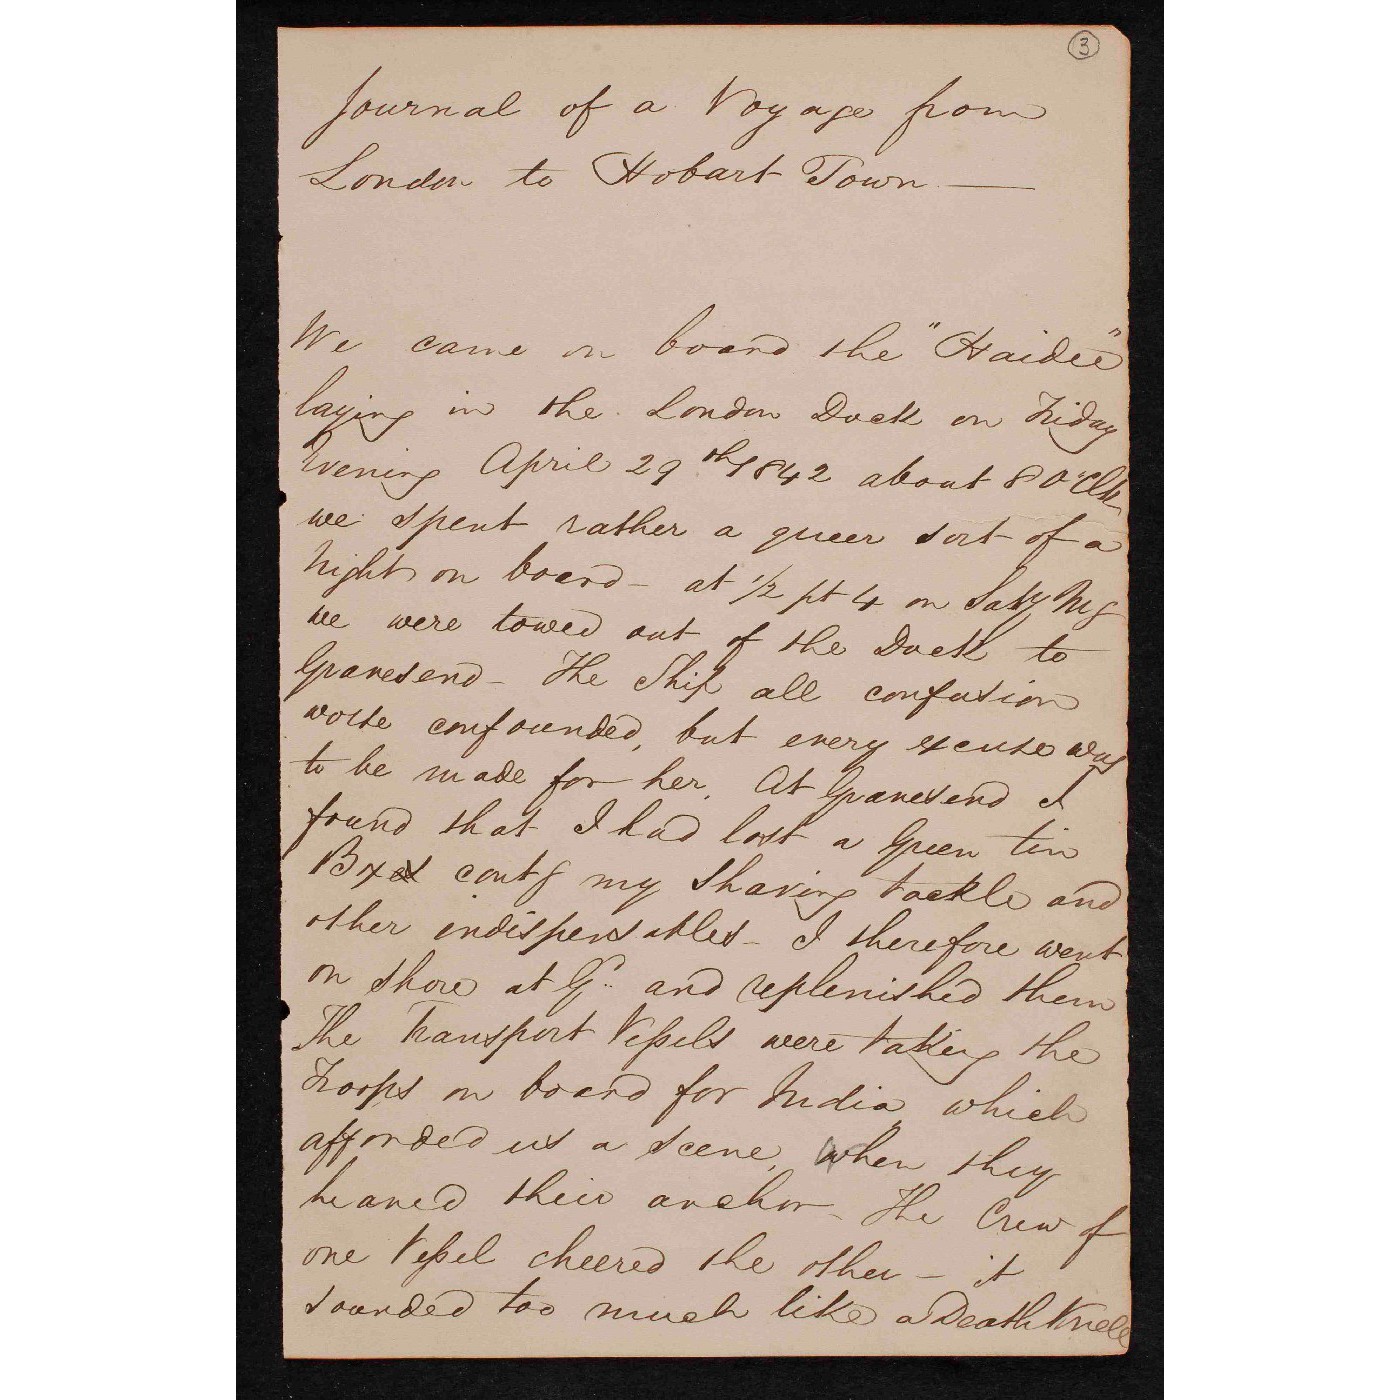 3
Journal of a Voyage from
London to Hobart Town —
We came on board the "Haidee"
laying in the London Dock on Friday
Evening April 29th 1842 about 8 O'Clk
we spent rather a queer sort of a
Night on board - at 1/2 pt 4 on Saty Mg
we were towed out of the Dock to
Gravesend - The Ship all confusion
worse confounded, but every excuse was
to be made for her. At Gravesend I
found that I had lost a Green tin
Bx contg my shaving tackle and
other indispensables - I therefore went
on shore at G. and replenished them
The Transport Vessels were taking the
Troops on board for India, which
afforded us a scene, when they
heaved their anchor - The Crew of
one Vessel cheered the other - it
sounded too much like a Death Knell